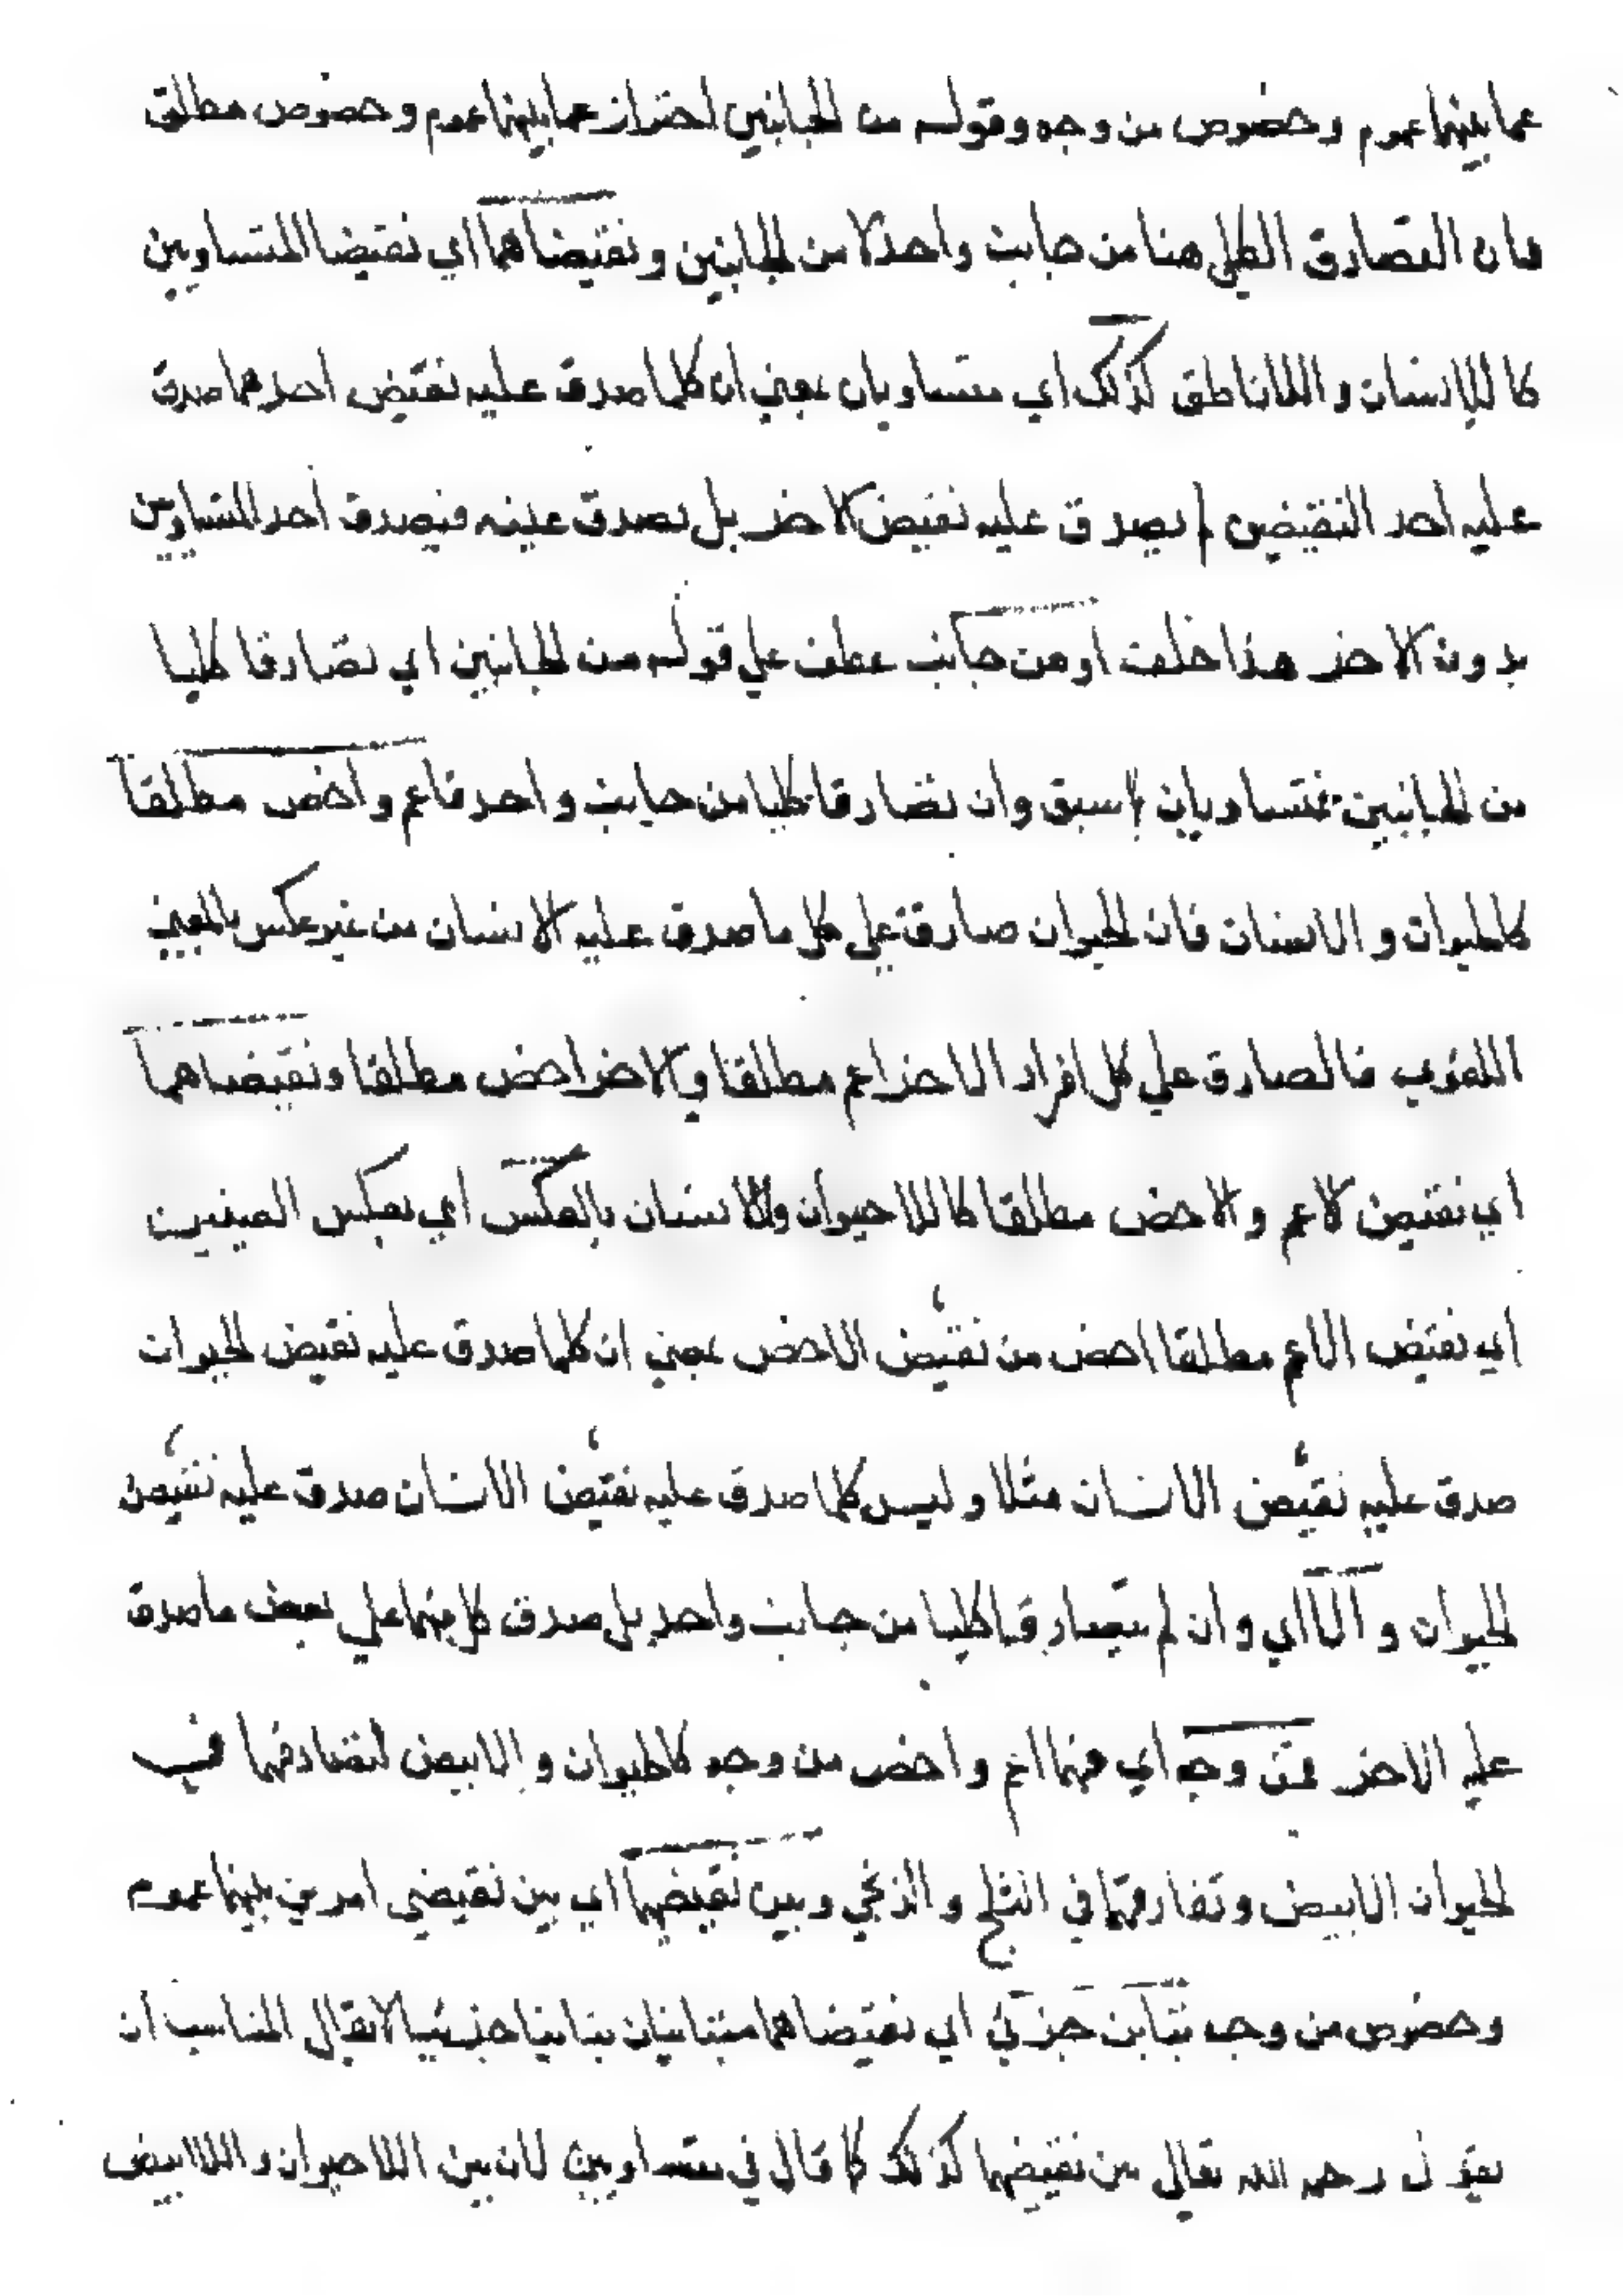 عما بينهما عموم وخصوص من وجه وقوله من الجانبين احتراز عما بينهما عموم وخصوص مطلق
فان التصادق الكلي هنا من جانب واحد لا من الجانبين ونقيضاهما اي نقيضا المتساويين
كاللاانسان واللاناطق كذلك اي متساويان بمعني ان كلما صدق عليه نقيض احدهما صدق
عليه احد النقيضين لم يصدق عليه نقيض الاخر بل يصدق عينه فيصدق احد المتساويين
بدون الاخر هذا خلف او من جانب عطف علي قوله من الجانبين اي تصادقا كليا
من الجانبين فمتساويان كما سبق وان تصادقا كليا من جانب واحد فاعم واخص مطلقا
كالحيوان والانسان فان الحيوان صادق علي كل ما صدق عليه الانسان من غير عكس بالمعني
اللغوي فالصادق علي كل افراد الاخر اعم مطلقا والاخر اخص مطلقا ونقيضاهما
اي نقيض الاعم والاخص مطلقا كاللاحيوان واللاانسان بالعكس اي بعكس العينين
اي نقيض الاعم مطلقا اخص من نقيض الاخص بمعني ان كلما صدق عليه نقيض الحيوان
صدق عليه نقيض الانسان مثلا وليس كلما صدق عليه نقيض الانسان صدق عليه نقيض
الحيوان والا اي وان لم يتصادقا كليا من جانب واحد بل صدق كل منهما علي بعض ما صدق
عليه الاخر فمن وجه اي فهما اعم واخص من وجه كالحيوان والابيض لتصادقهما في
الحيوان الابيض وتفارقهما في الثلج والزنجي وبين نقيضيهما اي بين نقيضي امرين بينهما عموم
وخصوص من وجه تباين جزئي اي نقيضاهما متباينان تباينا جزئيا لا يقال المناسب ان
يقول رحمه الله تعالي من نقيضيهما كذلك كما قال في متساويين لان بين اللاحيوان واللاابيض